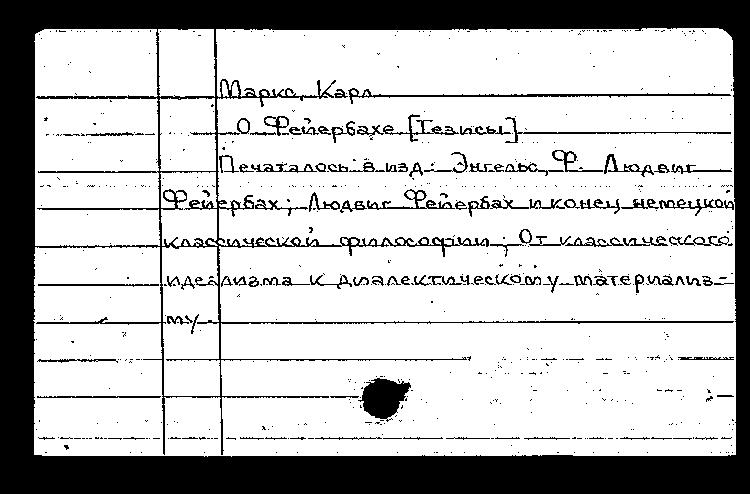 Маркс, Карл.
О Фейербахе [Тезисы].
Печаталось в изд.: Энгельс, Ф. Людвиг
Фейербах; Людвиг Фейербах и конец немецкой
классической философии; От классического
идеализма к диалектическому материализ-
му.